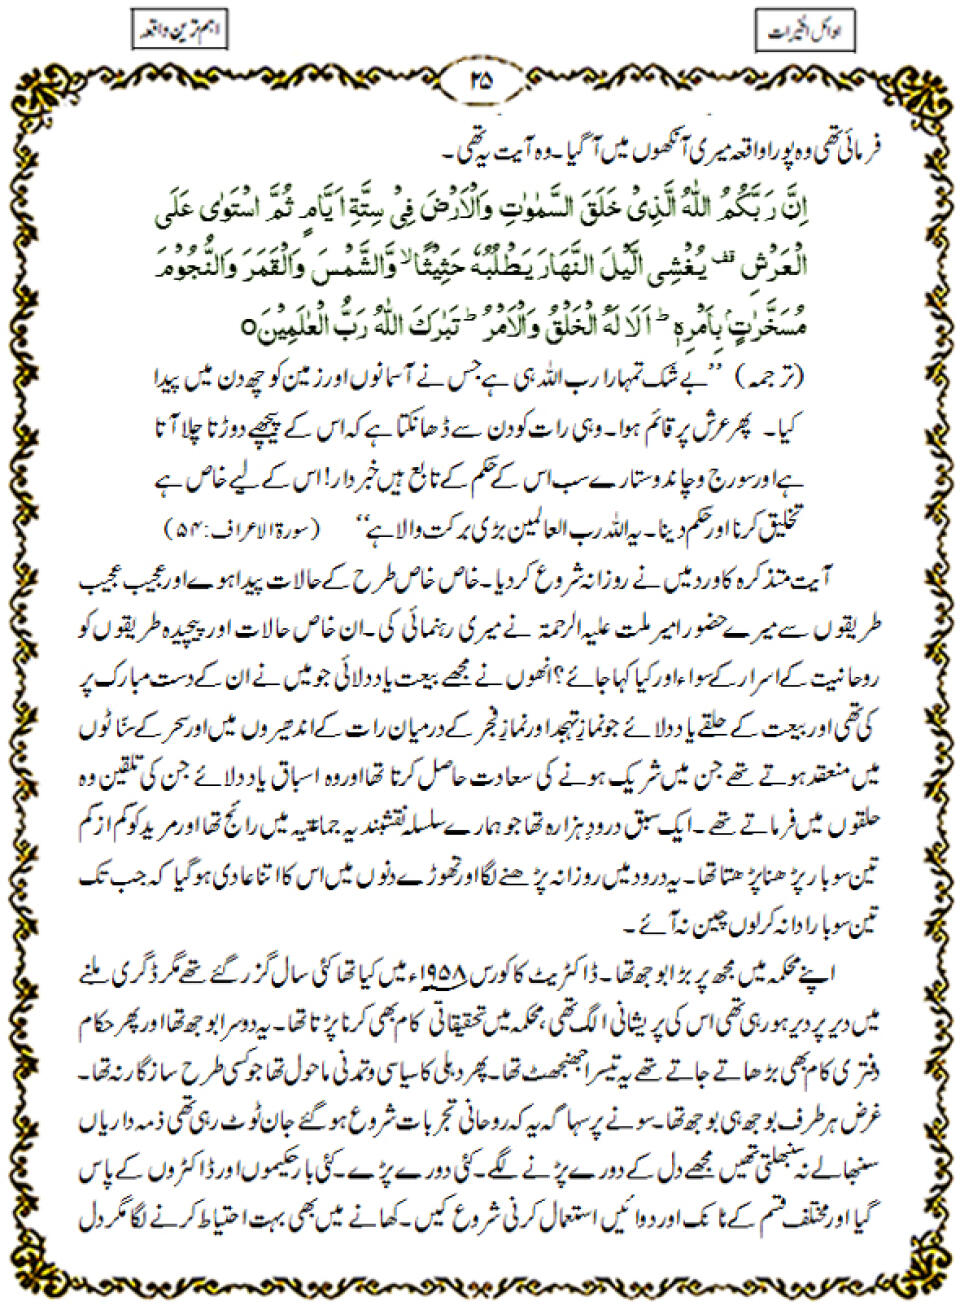 اوائل الخیرات
اہم ترین واقعہ
۲۵
فرمائی تھی وہ پورا واقعہ میری آنکھوں میں آ گیا۔ وہ آیت یہ تھی۔
اِنَّ رَبَّكُمُ اللّٰهُ الَّذِىْ خَلَقَ السَّمٰوٰتِ وَالْاَرْضَ فِىْ سِتَّةِ اَيَّامٍ ثُمَّ اسْتَوٰى عَلَى
الْعَرْشِ قف يُغْشِى الَّيْلَ النَّهَارَ يَطْلُبُهٗ حَثِيْثًا ۙ وَّالشَّمْسَ وَالْقَمَرَ وَالنُّجُوْمَ
مُسَخَّرٰتٍۭ بِاَمْرِهٖ ؕ اَلَا لَهُ الْخَلْقُ وَالْاَمْرُ ؕ تَبٰرَكَ اللّٰهُ رَبُّ الْعٰلَمِيْنَ o
(ترجمہ) ’’بے شک تمہارا رب اللہ ہی ہے جس نے آسمانوں اور زمین کو چھ دن میں پیدا
کیا۔ پھر عرش پر قائم ہوا۔ وہی رات کو دن سے ڈھانکتا ہے کہ اس کے پیچھے دوڑتا چلا آتا
ہے اور سورج و چاند و ستارے سب اس کے حکم کے تابع ہیں خبردار! اس کے لیے خاص ہے
تخلیق کرنا اور حکم دینا۔ یہ اللہ رب العالمین بڑی برکت والا ہے‘‘ (سورۃ الاعراف: ۵۴)
آیت متذکرہ کا ورد میں نے روزانہ شروع کردیا۔ خاص خاص طرح کے حالات پیدا ہوے اور عجیب عجیب
طریقوں سے میرے حضور امیر ملت علیہ الرحمۃ نے میری رہنمائی کی۔ ان خاص حالات اور پیچیدہ طریقوں کو
روحانیت کے اسرار کے سواء اور کیا کہا جائے؟ انھوں نے مجھے بیعت یاد دلائی جو میں نے ان کے دست مبارک پر
کی تھی اور بیعت کے حلقے یاد دلائے جو نمازِ تہجد اور نمازِ فجر کے درمیان رات کے اندھیروں میں اور سحر کے سنّاٹوں
میں منعقد ہوتے تھے جن میں شریک ہونے کی سعادت حاصل کرتا تھا اور وہ اسباق یاد دلائے جن کی تلقین وہ
حلقوں میں فرماتے تھے۔ ایک سبق درودِ ہزارہ تھا جو ہمارے سلسلہ نقشبندیہ جماعتیہ میں رائج تھا اور مرید کو کم از کم
تین سو بار پڑھنا پڑھتا تھا۔ یہ درود میں روزانہ پڑھنے لگا اور تھوڑے دنوں میں اس کا اتنا عادی ہو گیا کہ جب تک
تین سو بار ادا نہ کرلوں چین نہ آئے۔
اپنے محکمہ میں مجھ پر بڑا بوجھ تھا۔ ڈاکٹریٹ کا کورس ۱۹۵۸ء میں کیا تھا کئی سال گزر گئے تھے مگر ڈگری ملنے
میں دیر پر دیر ہو رہی تھی اس کی پریشانی الگ تھی، محکمہ میں تحقیقاتی کام بھی کرنا پڑتا تھا۔ یہ دوسرا بوجھ تھا اور پھر حکام
دفتری کام بھی بڑھاتے جاتے تھے یہ تیسرا جھنجھٹ تھا۔ پھر دہلی کا سیاسی و تمدنی ماحول تھا جو کسی طرح سازگار نہ تھا۔
غرض ہر طرف بوجھ ہی بوجھ تھا۔ سونے پر سہاگہ یہ کہ روحانی تجربات شروع ہو گئے جان ٹوٹ رہی تھی ذمہ داریاں
سنبھالے نہ سنبھلتی تھیں مجھے دل کے دورے پڑنے لگے۔ کئی دورے پڑے۔ کئی بار حکیموں اور ڈاکٹروں کے پاس
گیا اور مختلف قسم کے ٹانک اور دوائیں استعمال کرنی شروع کیں۔ کھانے میں بھی بہت احتیاط کرنے لگا مگر دل